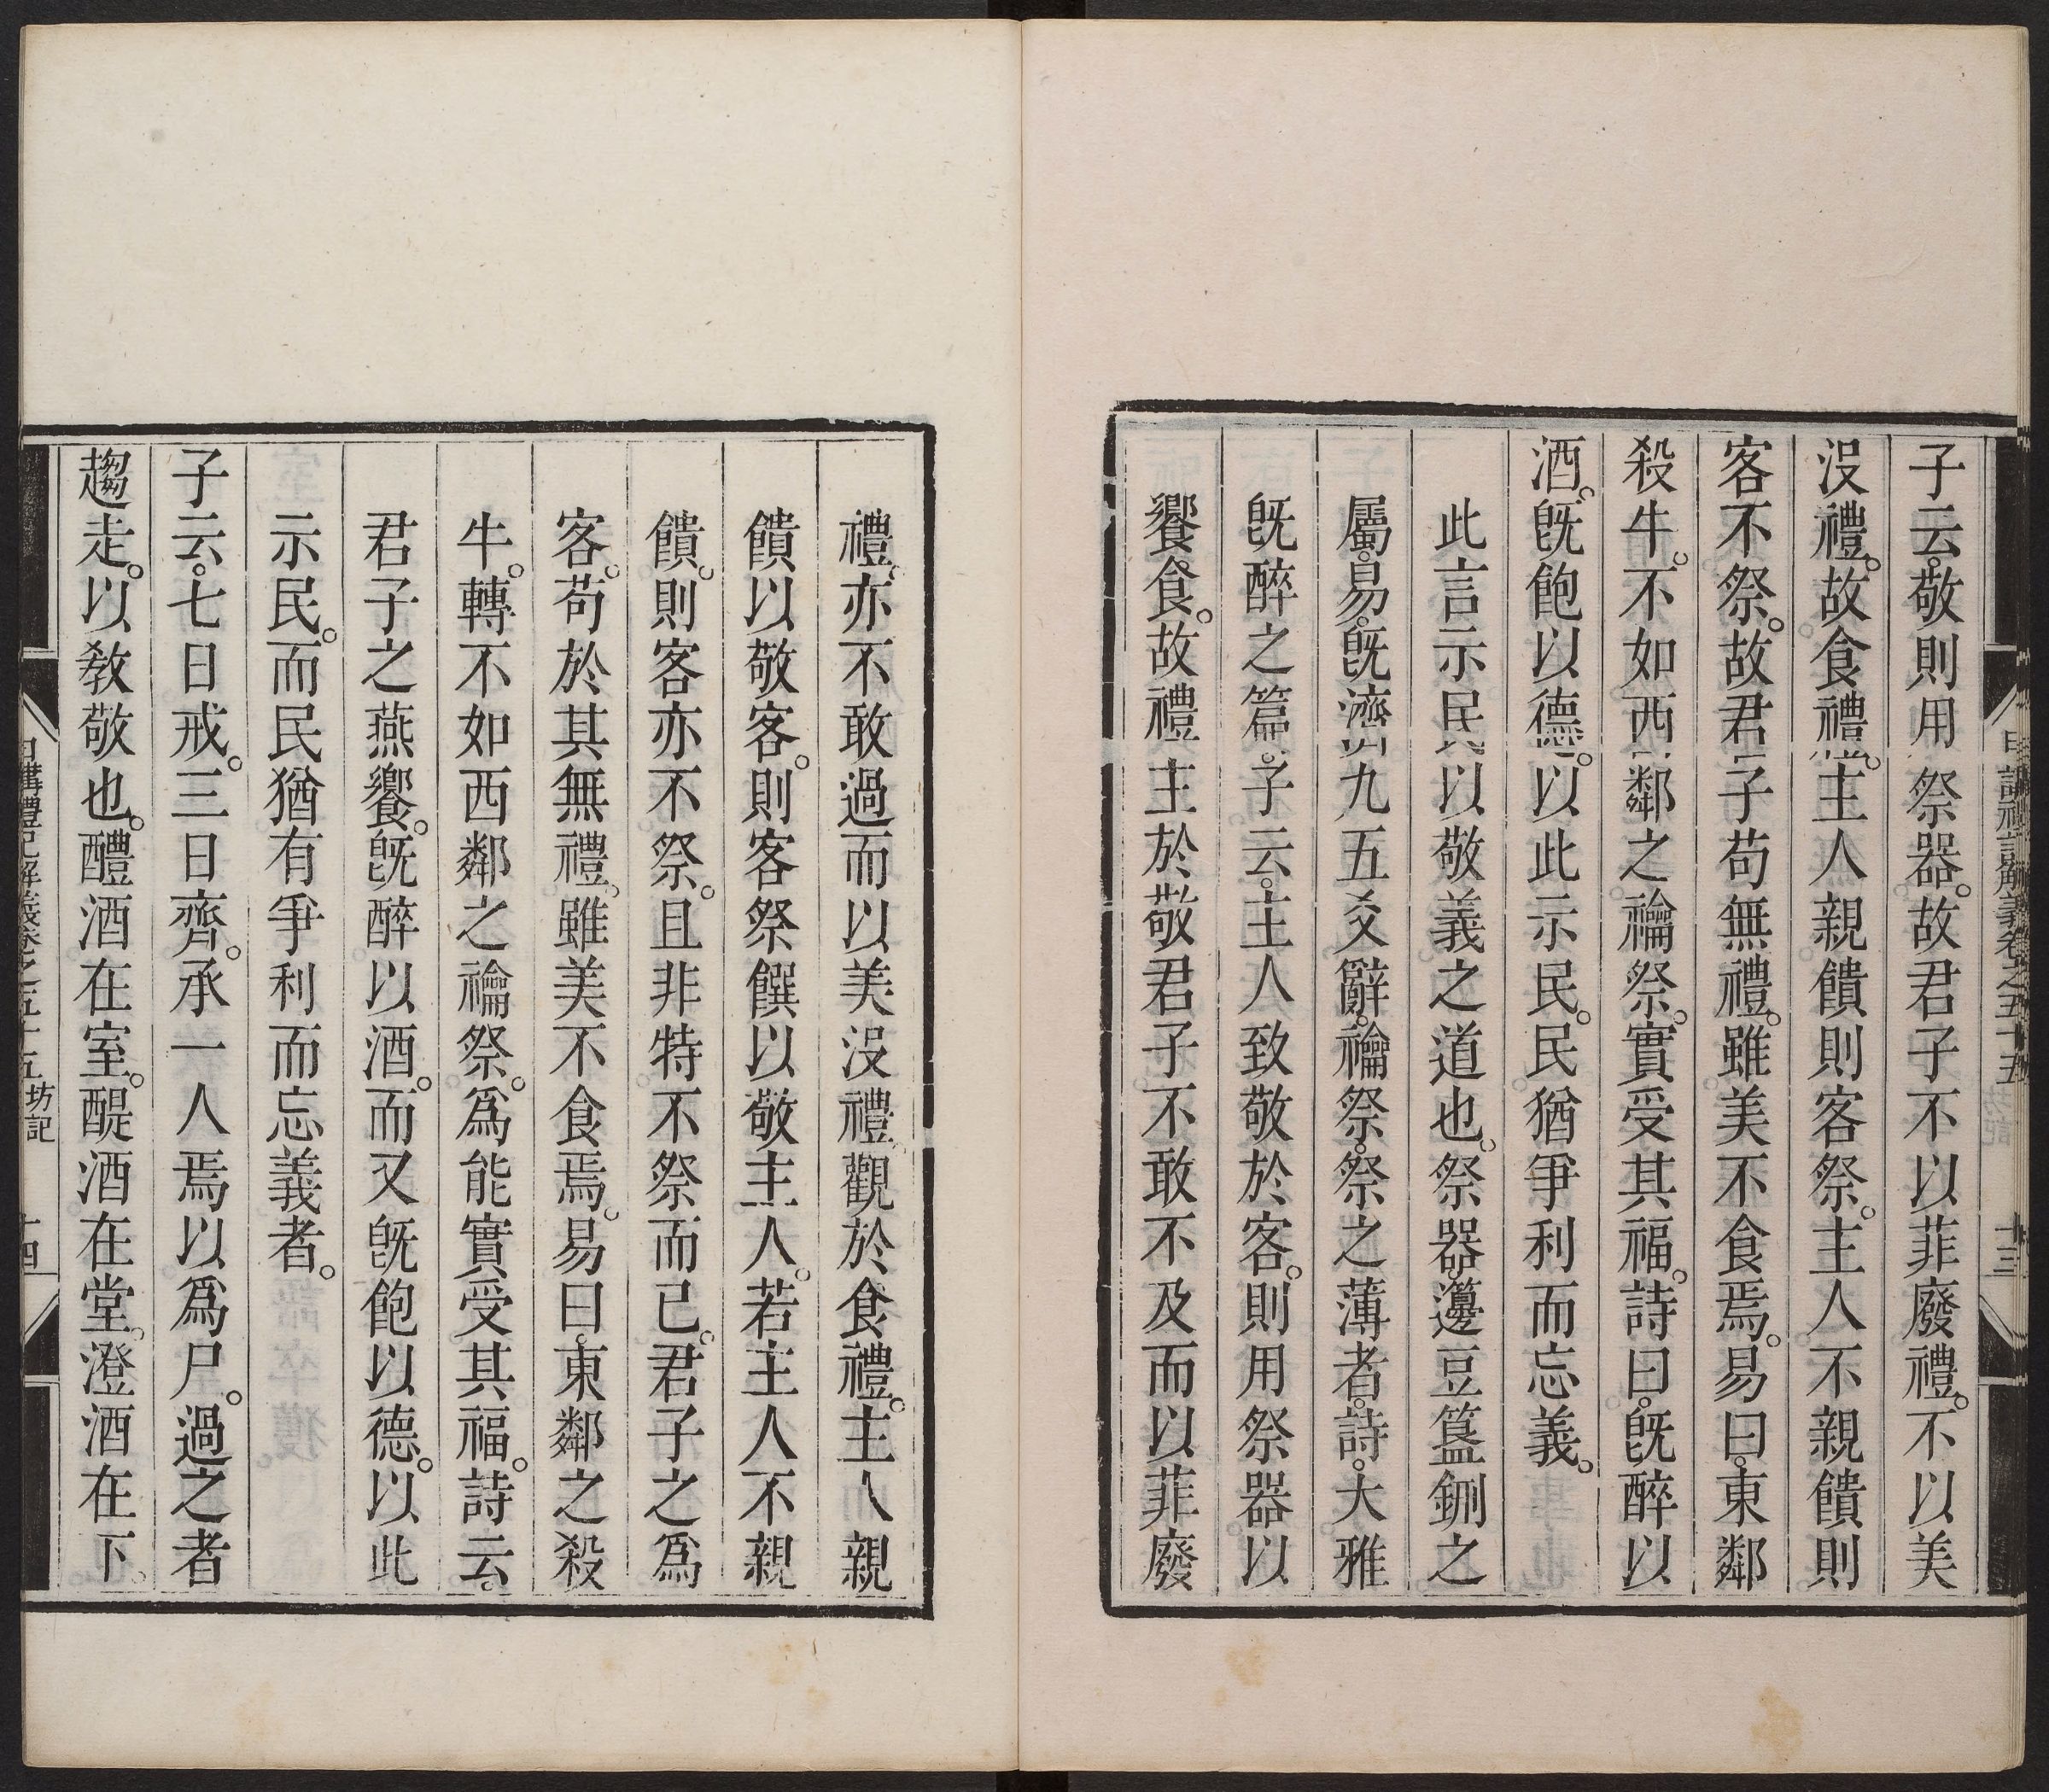 子云敬則用祭器。故君子不以菲廢禮。不以美
沒禮。故食禮。主人親饋則客祭。主人不親饋則
客不祭。故君子苟無禮。雖美不食焉。易曰。東鄰
殺牛。不如西鄰之禴祭。實受其福。詩曰。旣醉以
酒。旣飽以德。以此示民。民猶爭利而忘義。
此言示民以敬義之道也。祭器。籩豆簋鉶之
屬。易。旣濟九五爻辭。禴祭。祭之薄者。詩。大雅
旣醉之篇。子云。主人致敬於客。則用祭器以
饗食。故禮主於敬君子不敢不及而以菲廢
禮。亦不敢過而以美沒禮。觀於食禮。主人親
饋以敬客。則客祭饌以敬主人。若主人不親
饋。則客亦不祭。且非特不祭而已。君子之爲
客。苟於其無禮。雖美不食焉。易曰。東鄰之殺
牛。轉不如西鄰之禴祭。爲能實受其福。詩云。
君子之燕饗。旣醉以酒。而又旣飽以德。以此
示民。而民猶有爭利而忘義者。
子云。七日戒。三日齊。承一人焉以爲尸。過之者
趨走。以敎敬也。醴酒在室。醍酒在堂。澄酒在下。
日講禮記解義卷之五十五 坊記 十四